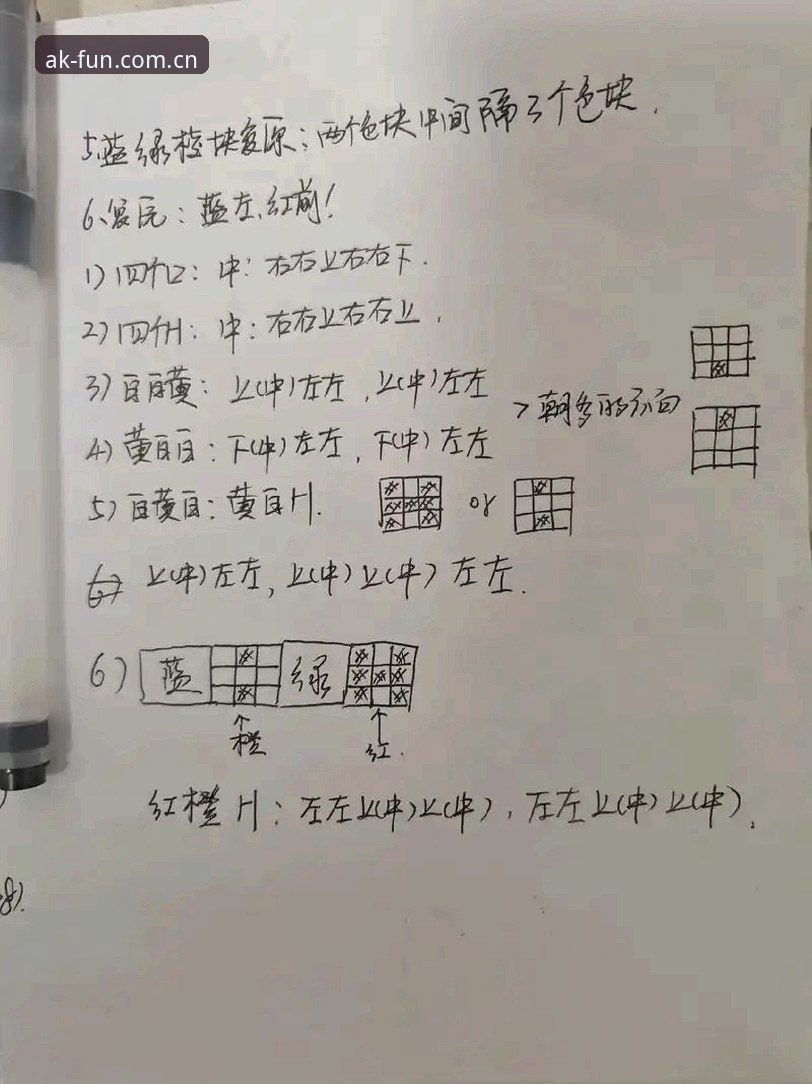 ak-fun.com.cn
5.蓝绿棱块复原:两个色块中间隔3个色块.
6、复原:蓝左、红前!
1)四个口:中:右右上右右下.
2)四个H:中:右右上右右上.
3)白白黄:上(中)左左,上(中)左左
4)黄白白:下(中)左左,下(中)左左
>朝多的方向
5)白黄白:黄白H. or
6) 上(中)左左,上(中)上(中)左左.
6) 蓝 绿
↑橙 ↑红.
红橙H:左左上(中)上(中),左左上(中)上(中).
8).